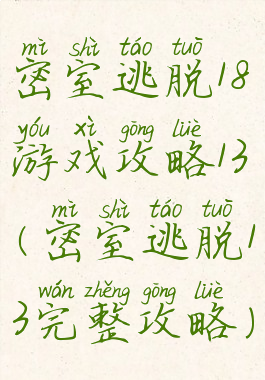 mì shì táo tuō
密室逃脱18
yóu xì gōng lüè
游戏攻略13
mì shì táo tuō
(密室逃脱1
wán zhěng gōng lüè
3完整攻略)